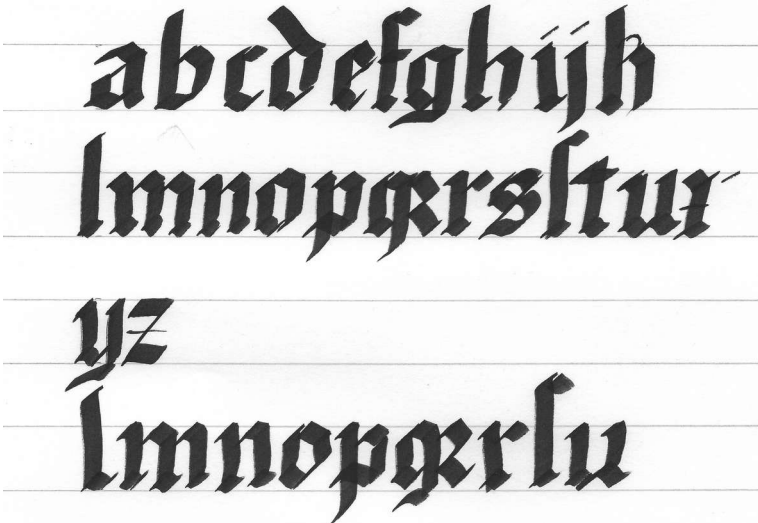 abcdefghijk
lmnopqꝛrsſtux
yz
lmnopqꝛrſu